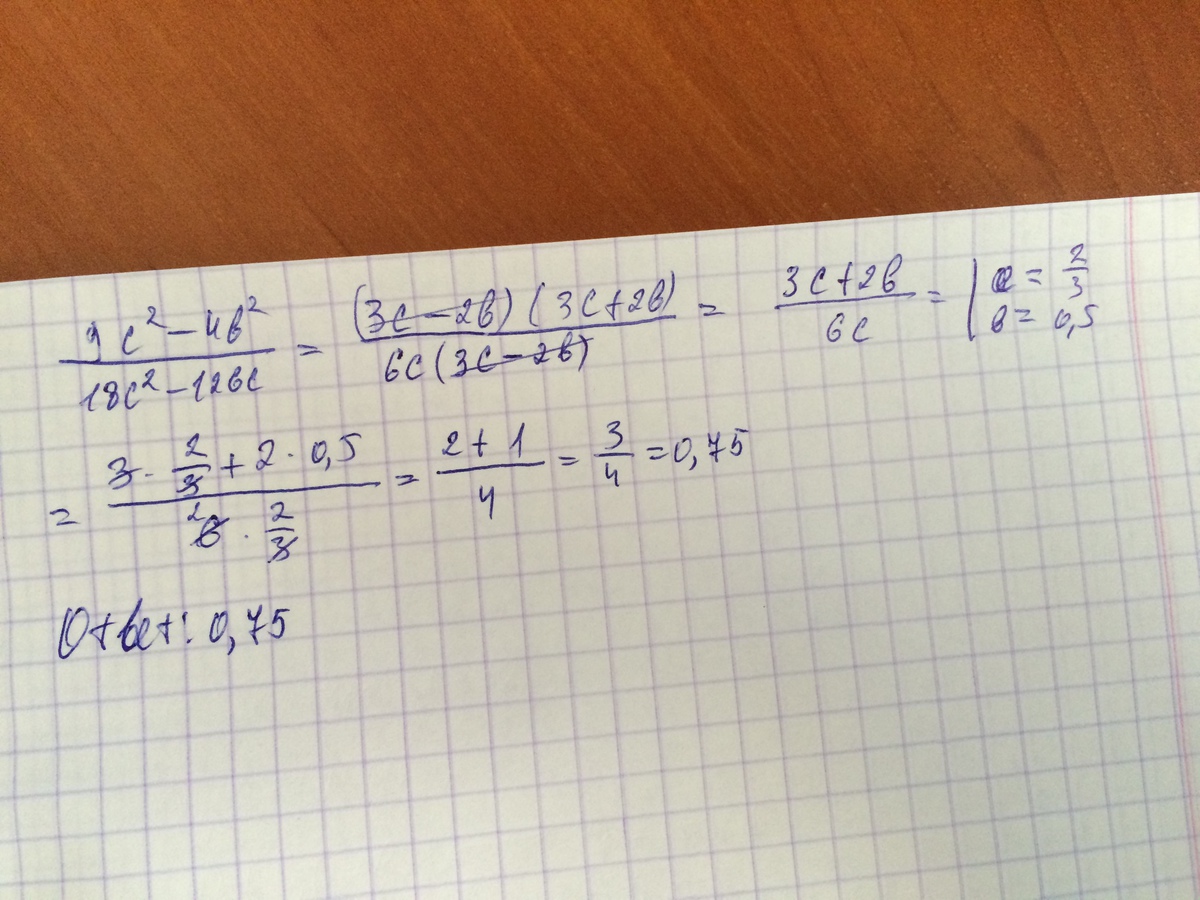 (9c² − 4в²)/(18c² − 12вc) = ((3c − 2в)(3c + 2в))/(6c(3c − 2в)) = (3c + 2в)/(6c) = | c = 2/3
в = 0,5
= (3 · 2/3 + 2 · 0,5)/(6 · 2/3) = (2 + 1)/4 = 3/4 = 0,75
Ответ: 0,75